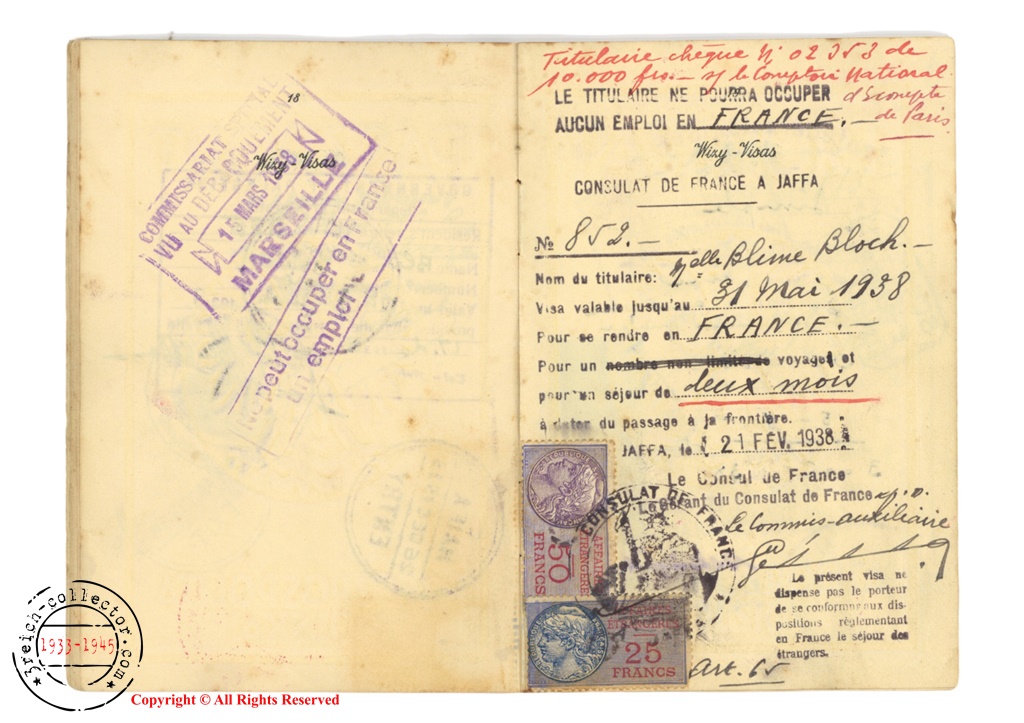 18
Wizy-Visas
COMMISSARIAT SPECIAL
VU AU DÉBARQUEMENT
15 MARS 1938
MARSEILLE
peut occuper en France
emploi
ENTRY
Titulaire chèque N° 02353 de
10.000 frs.- s/ le Comptoir National
d'Escompte
de Paris
LE TITULAIRE NE POURRA OCCUPER
AUCUN EMPLOI EN FRANCE.-
Wizy-Visas
CONSULAT DE FRANCE A JAFFA
No 852.-
Nom du titulaire: Melle Blime Bloch.-
Visa valable jusqu'au 31 Mai 1938
Pour se rendre en FRANCE.-
Pour un nombre non limité de voyage et
pour un séjour de deux mois
à dater du passage à la frontière.
JAFFA, le 21 FÉV. 1938
Le Consul de France
Le Gérant du Consulat de France p.o.
Le Commis-auxiliaire
CONSULAT DE FRANCE
AFFAIRES
ETRANGERES
50
FRANCS
ETRANGERES
25
FRANCS
Le présent visa ne
dispense pas le porteur
de se conformer aux dis-
positions règlementant
en France le séjour des
étrangers.
Art. 65
3reich-collector.com
1933-1945
Copyright © All Rights Reserved